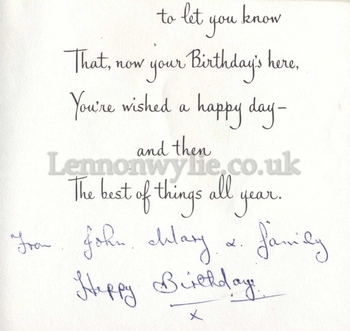 to let you know
That, now your Birthday's here,
You're wished a happy day—
and then
Lennonwylie.co.uk
The best of things all year.
From John, Mary & family
Happy Birthday
x